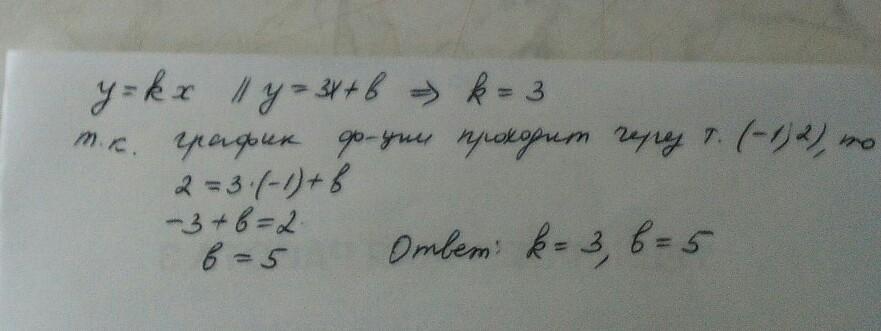 y = kx || y = 3x + b ⇒ k = 3
т.к. график ф-ции проходит через т. (-1; 2), то
2 = 3·(-1) + b
-3 + b = 2
b = 5 Ответ: k = 3, b = 5